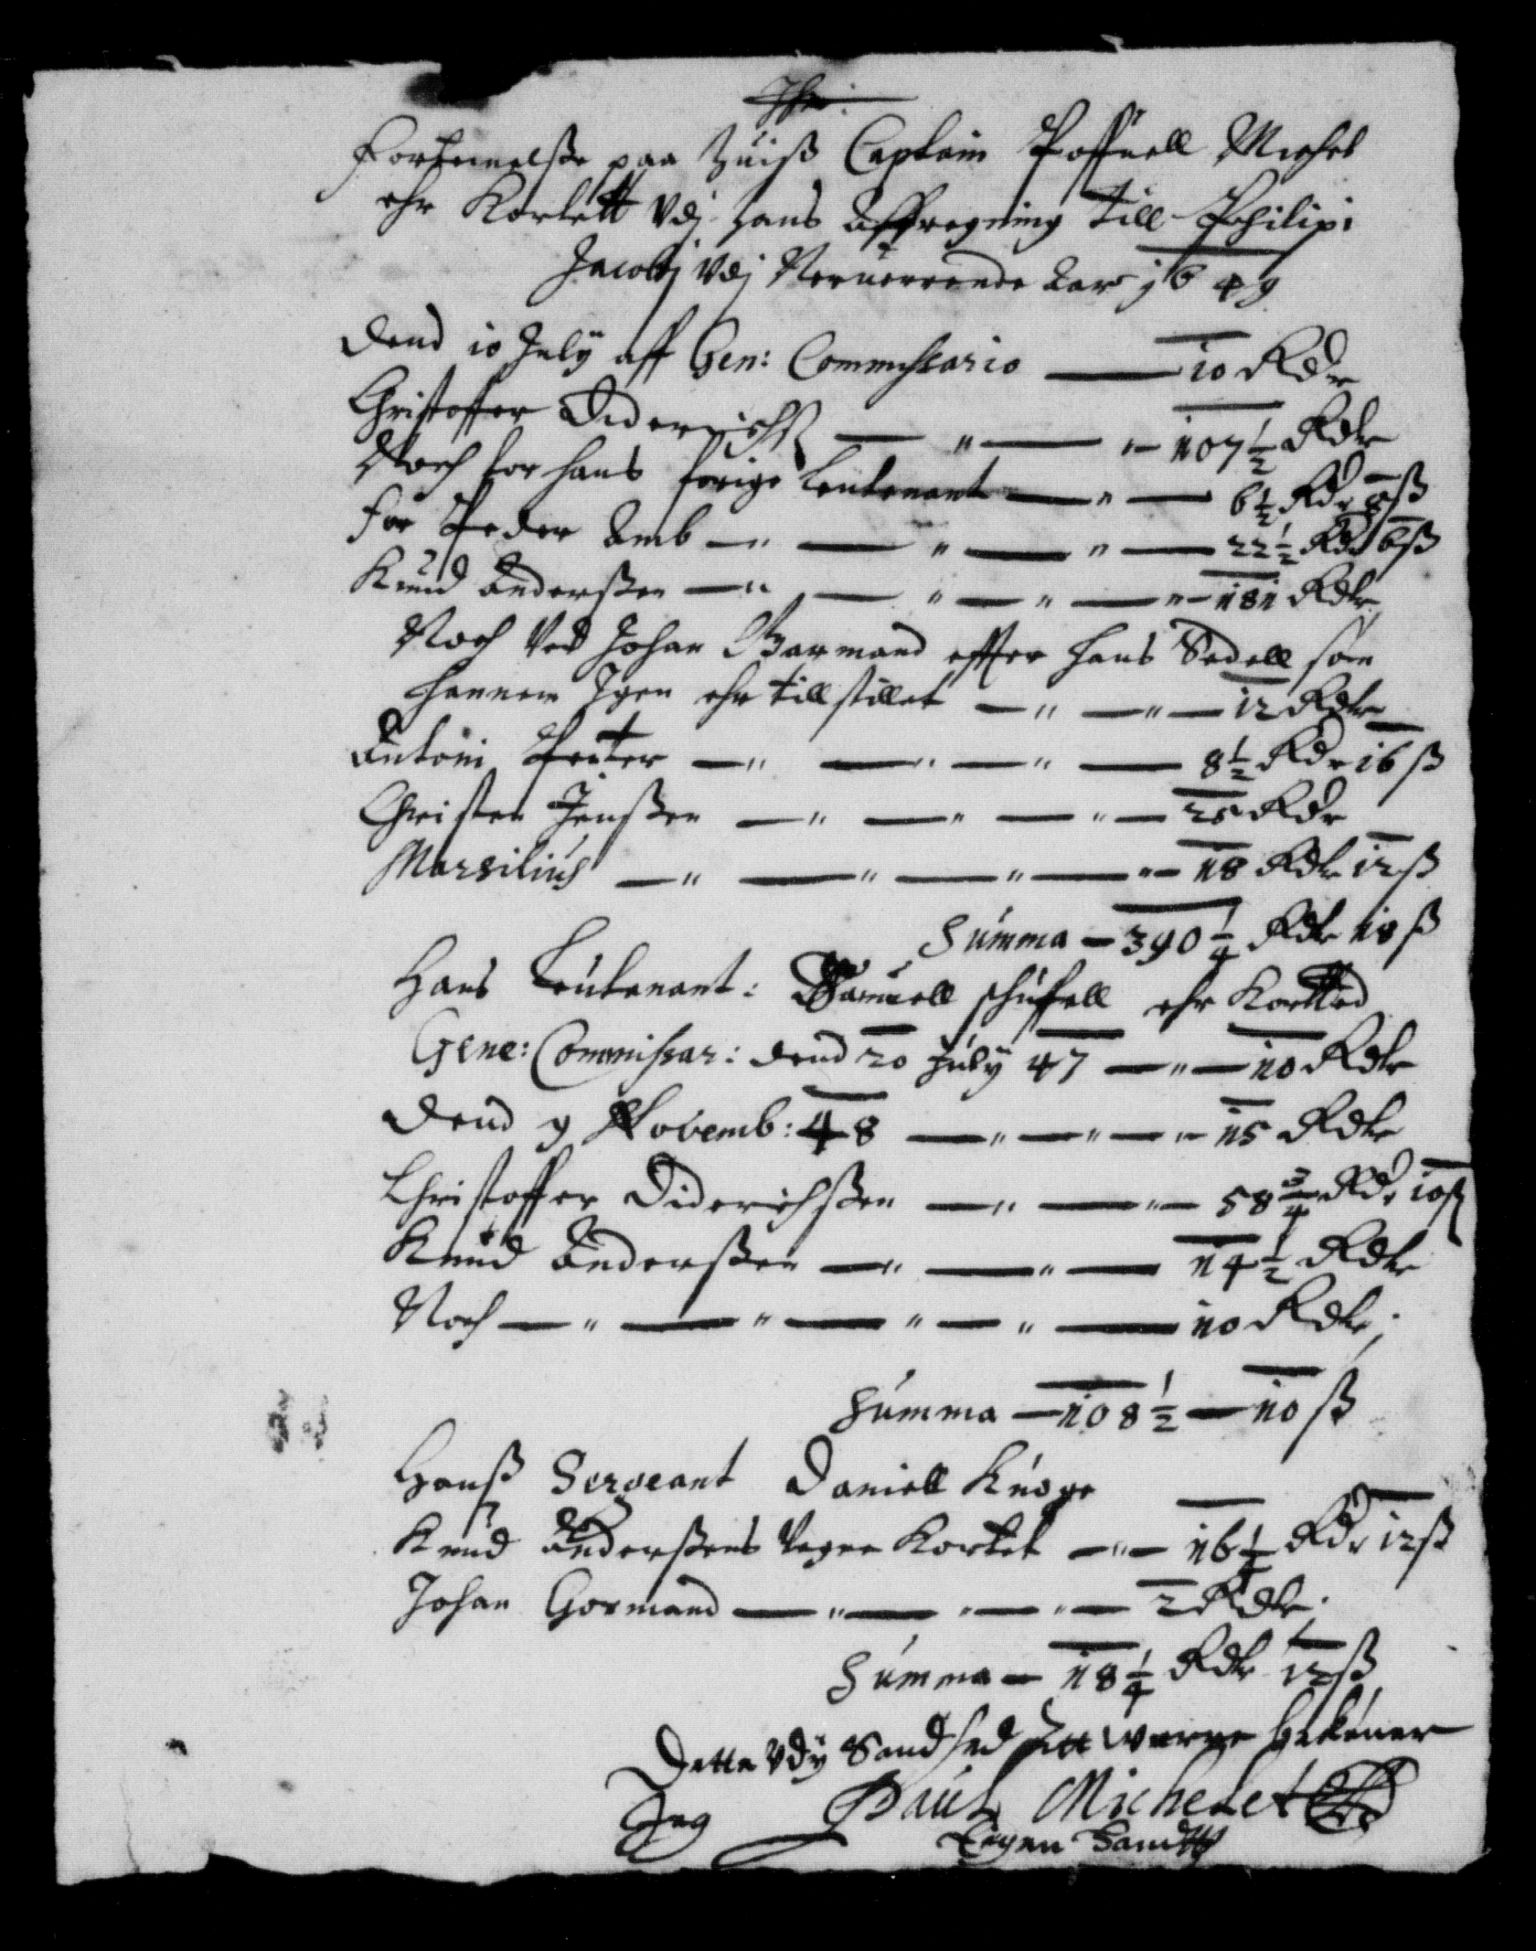 Fortennelße paa huiß Captein Poffuell Michel
ehr Kortett Vdj hans Affregning till Philipi
Jacobj Vdj Neruerrende Aar 1649
Dend 10 July aff Gen: Commissario — 10 Rdr
Christoffer Diderichß — " — " — 107 1/2 Rdr
Noch for hans forige Leutenant — " — 6 1/2 Rdr 8 ß
for Peder Amb — " — " — " — 22 1/2 Rdr 6 ß
Knud Anderßen — " — " — " — " — 181 Rdr
Noch Ved Johan Garmand effter hans Sedell som
hannem Igen ehr tillstillet — " — " — 12 Rdr
Antoni Peiter — " — " — " — 8 1/2 Rdr 16 ß
Christen Jenßen — " — " — " — 25 Rdr
Marsilius — " — " — " — " — 18 Rdr 12 ß
Summa — 390 1/4 Rdr 18 ß
Hans Leutenant: Samuell ehr Kortted
Gene: Commissar: dend 20 July 47 — " — 10 Rdr
Dend 9 Novemb: 48 — " — " — " — 15 Rdr
Christoffer Diderichßen — " — " — 58 3/4 Rdr 10 ß
Knud Anderßen — " — " — 14 1/2 Rdr
Noch — " — " — " — " — 10 Rdr
Summa — 108 1/2 — 10 ß
Hanß Sergeant Daniell Knoge
Knud Anderßens Vegne Kortet — " — 16 1/4 Rdr 12 ß
Johan Gormand — " — " — " — 2 Rdr
Summa — 18 1/4 Rdr 12 ß
Dette Vdj Sandhed att werre bekender
Jeg Paul Michelet
Eigen handt